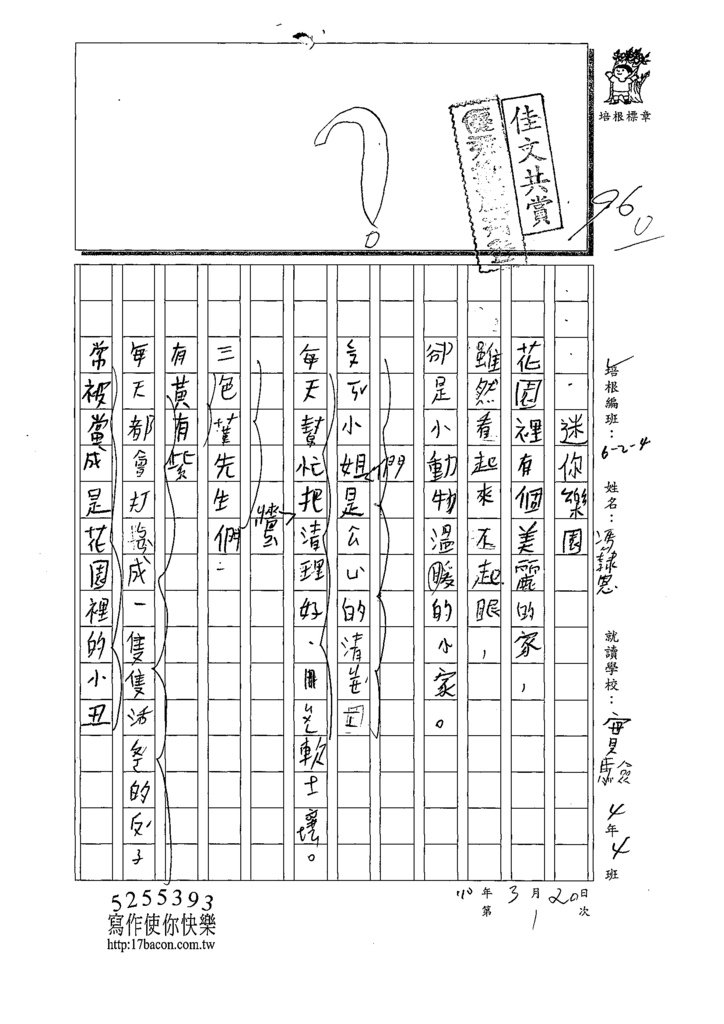 ?
佳文共賞
培根標章
96
培根編班：6-2-4 姓名：馮隸恩 就讀學校：實驗 4年4班
迷你樂園
花園裡有個美麗的家，
雖然看起來不起眼，
卻是小動物溫暖的小家。
小姐們是公的清
每天幫忙把清理好、軟土壤。
三色堇先生們
有黃有紫
每天都會打成一隻隻活的
常被當成是花園裡的小丑
110年3月20日
第1次
5255393
寫作使你快樂
http:17bacon.com.tw